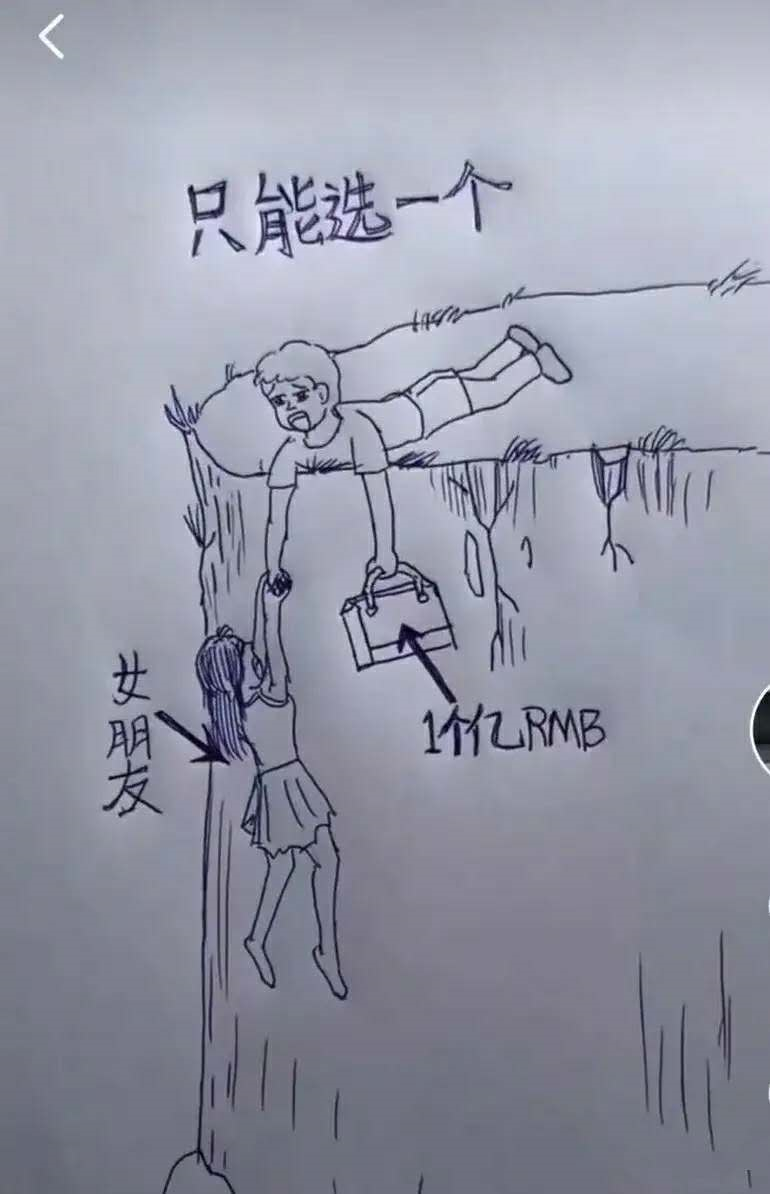 只能选一个
女朋友
1个亿RMB